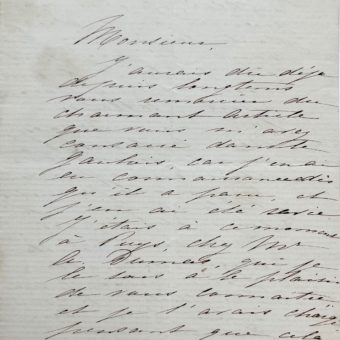 Monsieur,
J'aurais dû déjà
depuis longtems
vous remercier du
charmant article
que vous m'avez
consacré dans le
Gaulois, car j'en ai
eu connaissance dès
qu'il a paru, et
j'en ai été
J'étais à ce moment
à Puys, chez Mr
A. Dumas, qui je
le sais a le plaisir
de vous connaître
et je l'avais chargé
pensant que cela